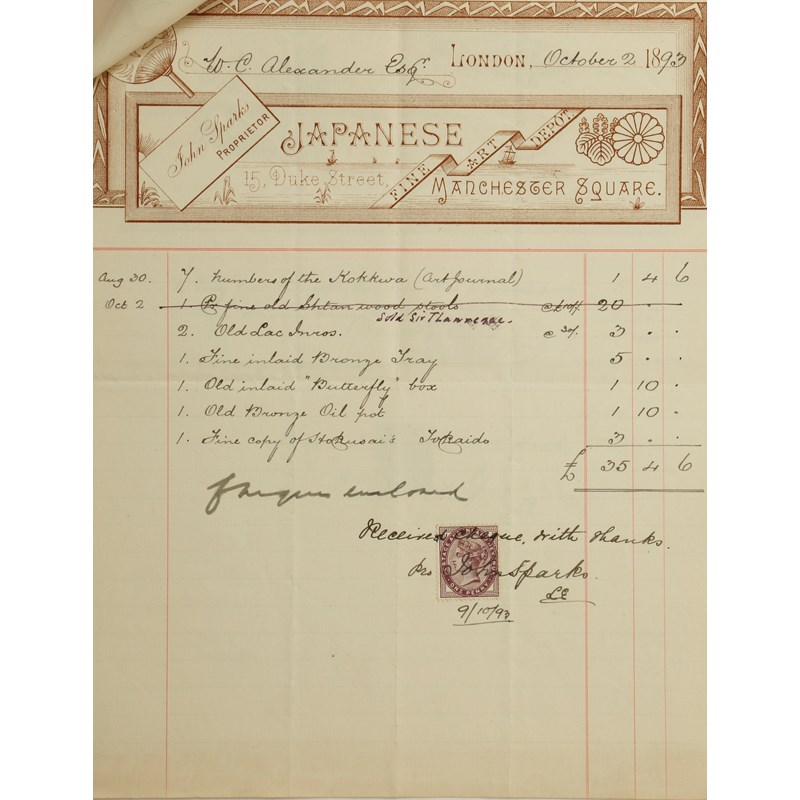 W. C. Alexander Esq. LONDON, October 2 1893
John Sparks
PROPRIETOR
JAPANESE
FINE ART DEPÔT
15, Duke Street,
MANCHESTER SQUARE.
Aug 30. 7. Numbers of the Kokkwa (Art Journal) 1 4 6
Oct 2 1. Pr fine old Shtan wood stools @ £10/- 20 . .
Sold Sir T Lawrence.
2. Old Lac Inros. @ 30/. 3 . .
1. Fine inlaid Bronze Tray 5 . .
1. Old inlaid "Butterfly" box 1 10 .
1. Old Bronze Oil pot 1 10 .
1. Fine copy of Hokusai's Tokaido 3 . .
£ 35 4 6
Cheque enclosed
Received cheque, with thanks.
Pro John Sparks.
POSTAGE
ONE PENNY
9/10/93